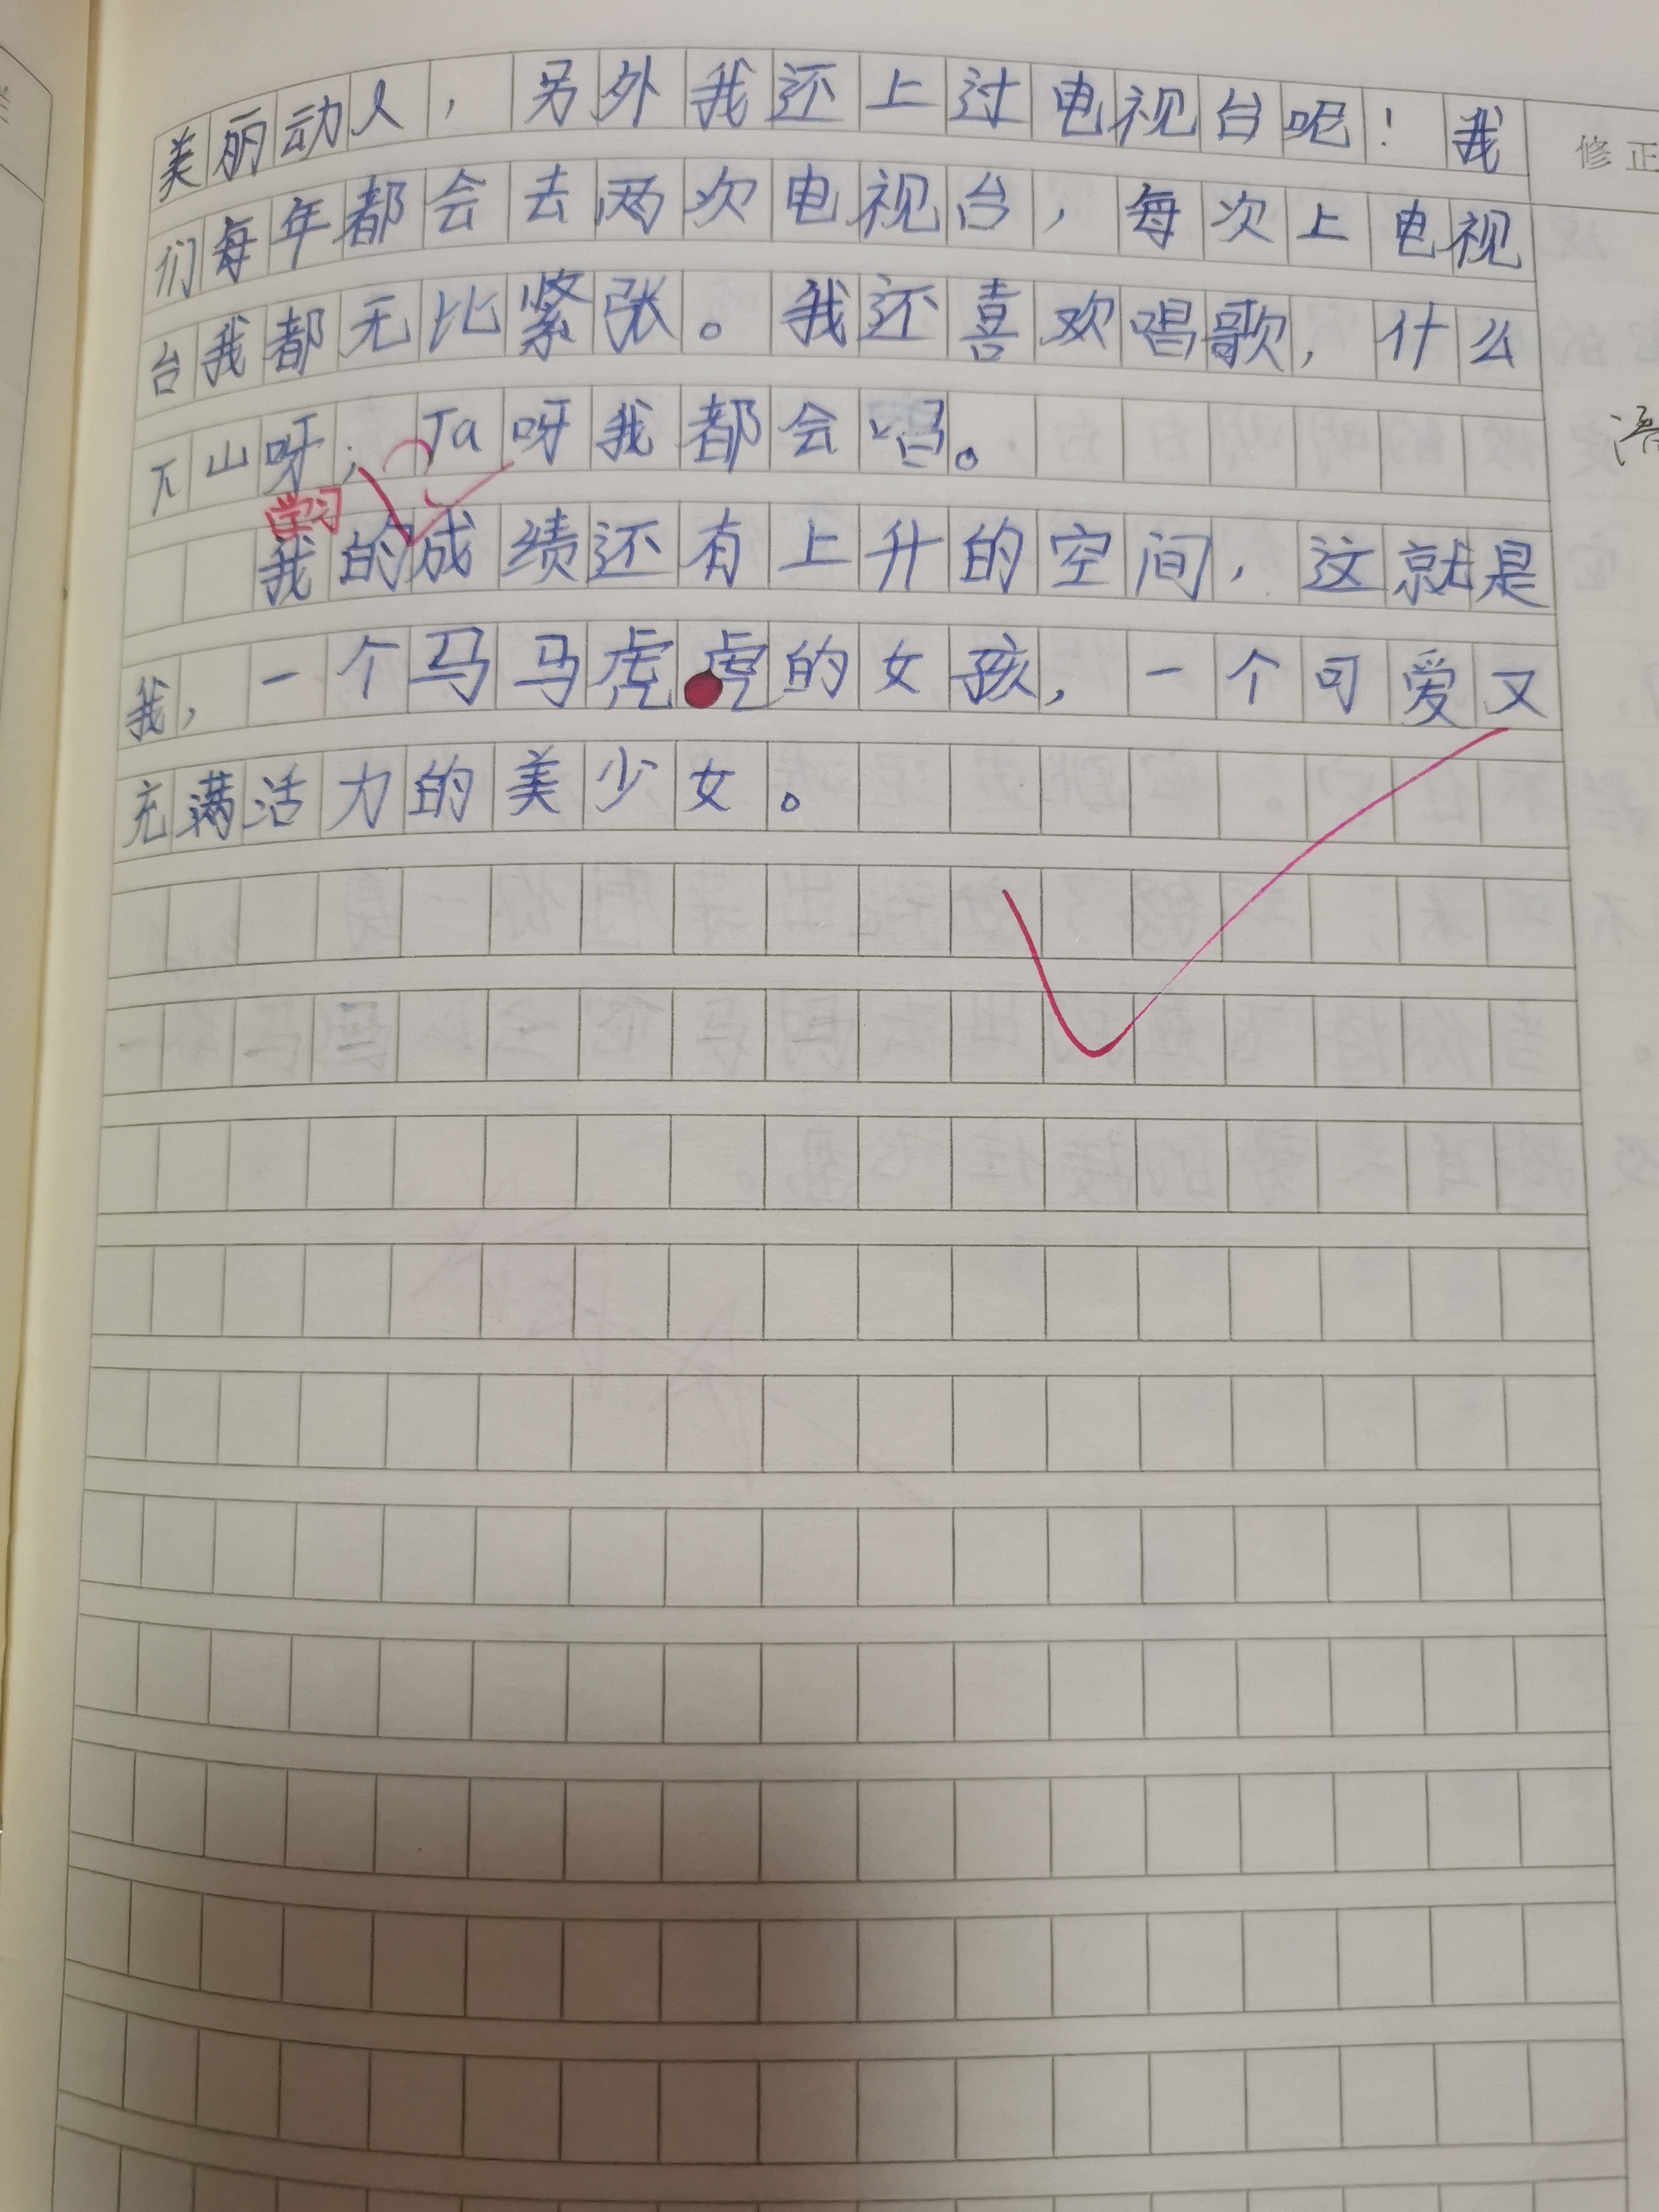 美丽动人，另外我还上过电视台呢！我
修正
们每年都会去两次电视台，每次上电视
台我都无比紧张。我还喜欢唱歌，什么
下山呀；Ta呀我都会唱。
学习
我的成绩还有上升的空间，这就是
我，一个马马虎虎的女孩，一个可爱又
充满活力的美少女。